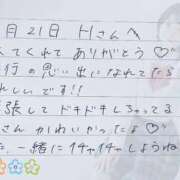 月21日 Hさんへ
てくれて ありがとう♡
行の思い出になれてたら
れしいです!!
張して ドキドキしちゃってる
さん かわいかったよ♡
た一緒にイチャイチャしようね